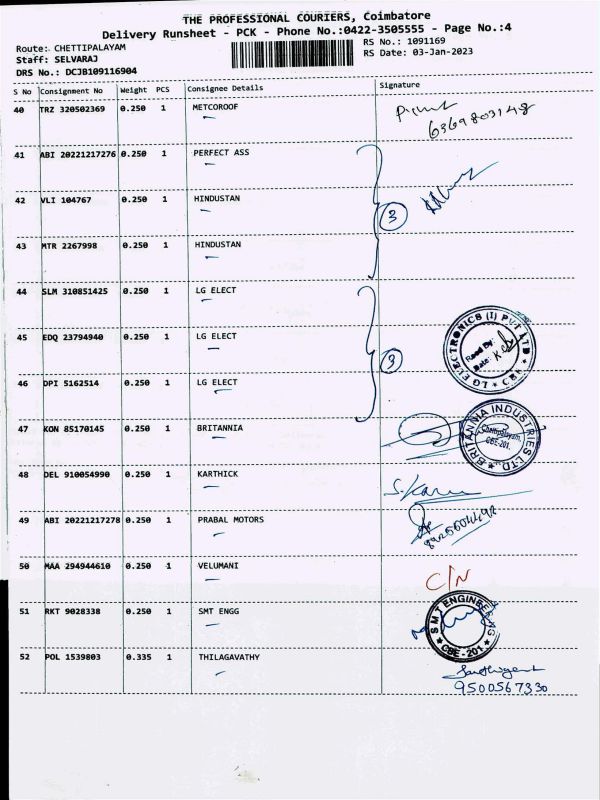 THE PROFESSIONAL COURIERS, Coimbatore
Delivery Runsheet - PCK - Phone No.:0422-3505555 - Page No.:4
Route: CHETTIPALAYAM RS No: 1091169
Staff: SELVARAJ RS Date: 03-Jan-2023
DRS No.: DCJB109116904
S No Consignment No Weight PCS Consignee Details Signature
40 TRZ 320502369 0.250 1 METCOROOF
6369803148
41 ABI 20221217276 0.250 1 PERFECT ASS
42 VLI 104767 0.250 1 HINDUSTAN
3
43 MTR 2267998 0.250 1 HINDUSTAN
44 SLM 310851425 0.250 1 LG ELECT
45 EDQ 23794940 0.250 1 LG ELECT
LG ELECTRONICS (I) PVT LTD * CBE *
Recd By:
Date:
3
46 DPI 5162514 0.250 1 LG ELECT
47 KON 85170145 0.250 1 BRITANNIA
BRITANNIA INDUSTRIES LTD.
Chettipalayam,
CBE-201.
48 DEL 910054990 0.250 1 KARTHICK
49 ABI 20221217278 0.250 1 PRABAL MOTORS
50 MAA 294944610 0.250 1 VELUMANI
C/N
51 RKT 9028338 0.250 1 SMT ENGG
SMT ENGINEERING
* CBE-201 *
52 POL 1539803 0.335 1 THILAGAVATHY
9500567330